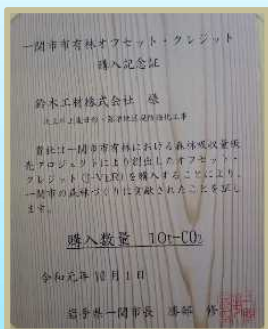 一関市市有林オフセット・クレジット
購入記念証
鈴木工材株式会社 様
貴社は一関市市有林における森林吸収量販
売プロジェクトにより創出したオフセット・
クレジット(J-VER)を購入することにより、
一関市の森林づくりに貢献されたことを証し
ます。
購入数量 10t-CO2
令和元年10月1日
岩手県一関市長 勝部 修